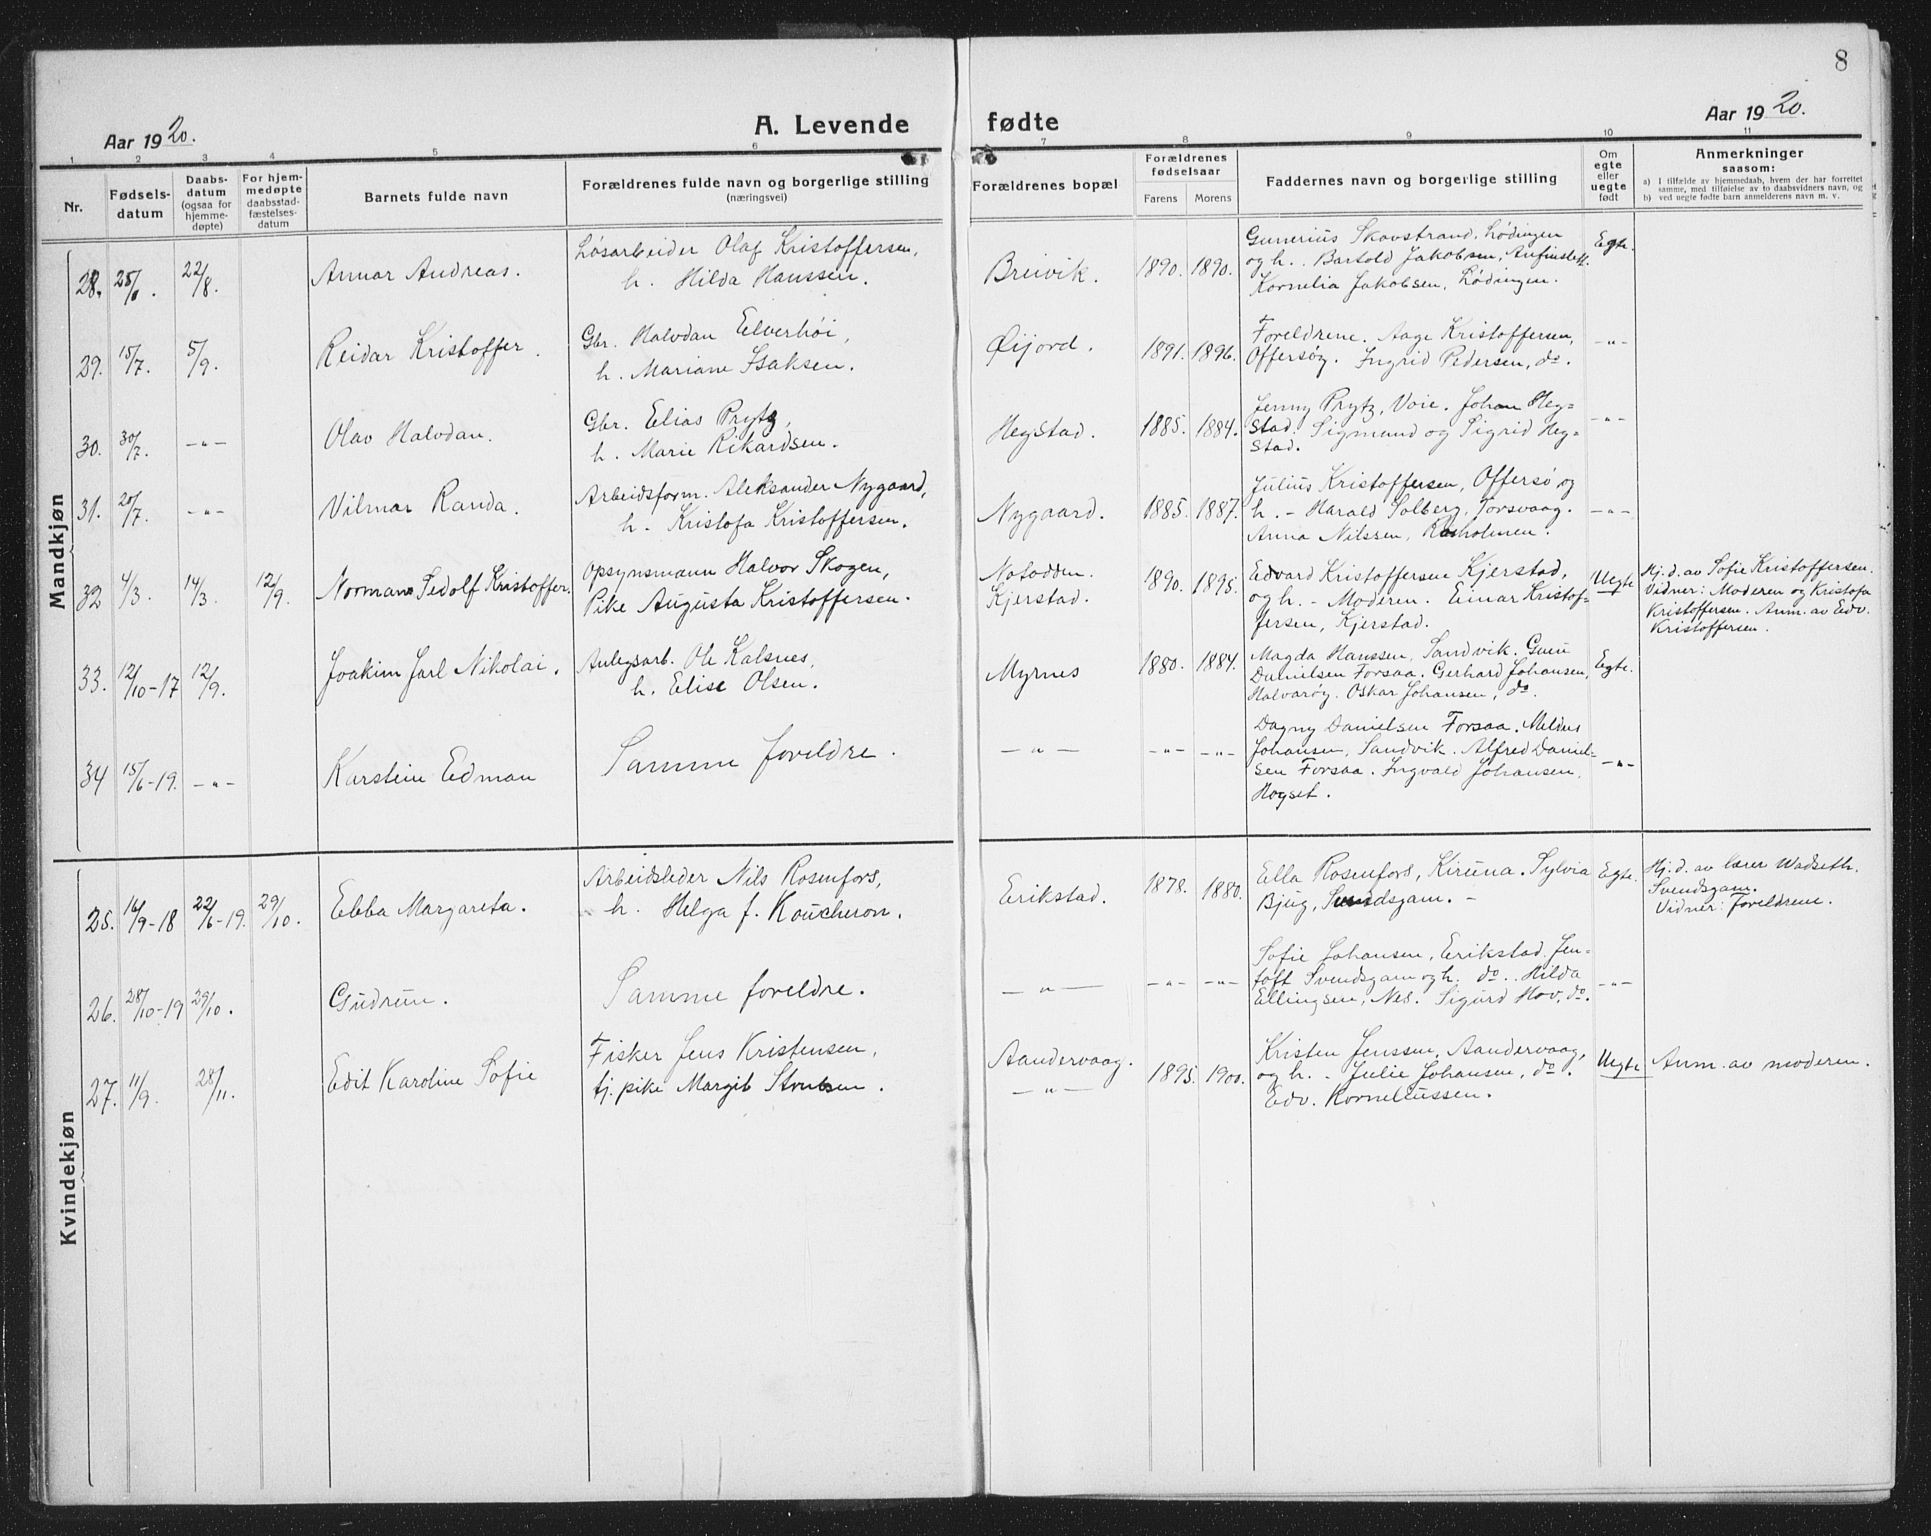 8
Aar 1920.
A. Levende fødte
Aar 1920.
1 2 3 4 5 6 7 8 9 10 11
Nr.
Fødsels-
datum
Daabs-
datum
(ogsaa for
hjemme-
døpte)
For hjem-
medøpte
daabsstad-
fæstelses-
datum
Barnets fulde navn
Forældrenes fulde navn og borgerlige stilling
(næringsvei)
Forældrenes bopæl
Forældrenes
fødselsaar
Farens Morens
Faddernes navn og borgerlige stilling
Om
egte
eller
uegte
født
Anmerkninger
saasom:
a) I tilfælde av hjemmedaab, hvem der har forrettet
samme, med tilføielse av to daabsvidners navn, og
b) ved uegte fødte barn anmelderens navn m. v.
Mandkjøn
28. 22/8. Annar Andreas.
Løsarbeider Olaf Kristoffersen,
h. Hilda Hanssen.
Breivik. 1890. 1890.
Gunerius Skovstrand, Lødingen
og h. Bartold Jakobsen,
Kornelia Jakobsen, Lødingen.
Egte.
29. 15/7. 5/9. Reidar Kristoffer.
Gbr. Halvdan Eilverhöi,
h. Mariane Isaksen.
Øijord. 1891. 1896.
Foreldrene. Aage Kristoffersen,
Offersøy. Ingrid Pedersen, do.
-"-
30. 30/7. -"- Olav Halvdan.
Gbr. Elias Prytz,
h. Marie Rikardsen.
Hegstad. 1885. 1884.
Jenny Prytz, Voie. Johan Heg=
stad. Sigmund og Sigrid Heg=
stad.
-"-
31. 20/7. -"- Vilmar Randa.
Arbeidsform. Aleksander Nygaard,
h. Kristofa Kristoffersen.
Nygaard. 1885. 1887.
Julius Kristoffersen, Offersø og
h. - Harald Solberg, Forsvaag.
Anna Nilssen,
-"-
32 4/3. 14/3. 12/9. Norman Sedolf Kristoffer.
Opsynsmann Halvor Skogen,
Pike Augusta Kristoffersen.
Notodden.
Kjerstad.
1890. 1895.
Edvard Kristoffersen Kjerstad,
og h. - Moderen. Einar Kristof-
fersen, Kjerstad.
Uegte
Hj. d. av Sofie Kristoffersen.
Vidner: Moderen og Kristofa
Kristoffersen. Anm. av Edv.
Kristoffersen.
33. 12/10-17 12/9. Joakim Jarl Nikolai.
Anlegsarb. Ole Kalsnes,
h. Elise Olsen.
Myrnes 1880. 1884.
Magda Hanssen, Sandvik.
Danielsen Forsaa. Gerhard Johansen,
Halvarøy. Oskar Johansen, do.
Egte.
34 15/6-19. -"- Karstein Edman
Samme foreldre.
-"- -"- -"-
Dagny Danielsen Forsaa.
Johansen, Sandvik. Alfred Daniel-
sen Forsaa. Ingvald Johansen,
Hogset.
-"-
Kvindekjøn
25. 14/9-18 22/6-19. 29/10. Ebba Margareta.
Arbeidsleder Nils Rosenfors,
h. Helga f. Koucheron.
Erikstad. 1878. 1880.
Ella Rosenfors, Kiruna. Sylvia
Bjug, Svendsgam. -
Egte.
Hj. d. av lærer Wadseth,
Svendsgam.
Vidner: Foreldrene.
26. 28/10-19 29/10. Gudrun.
Samme foreldre.
-"- -"- -"-
Sofie Johansen, Erikstad. Jen-
toft Svendsgam og h. do. Hilda
Ellingsen, Nes. Sigurd Hov, do.
-"-
27. 11/9. 28/11. Edit Karoline Sofie
Fisker Jens Kristensen,
tj. pike Margit
Aandervaag.
-"-
1895. 1900.
Kristen Jenssen, Aandervaag,
og h. - Julie Johansen, do.
Edv. Korneliussen.
Uegte
Anm. av moderen.